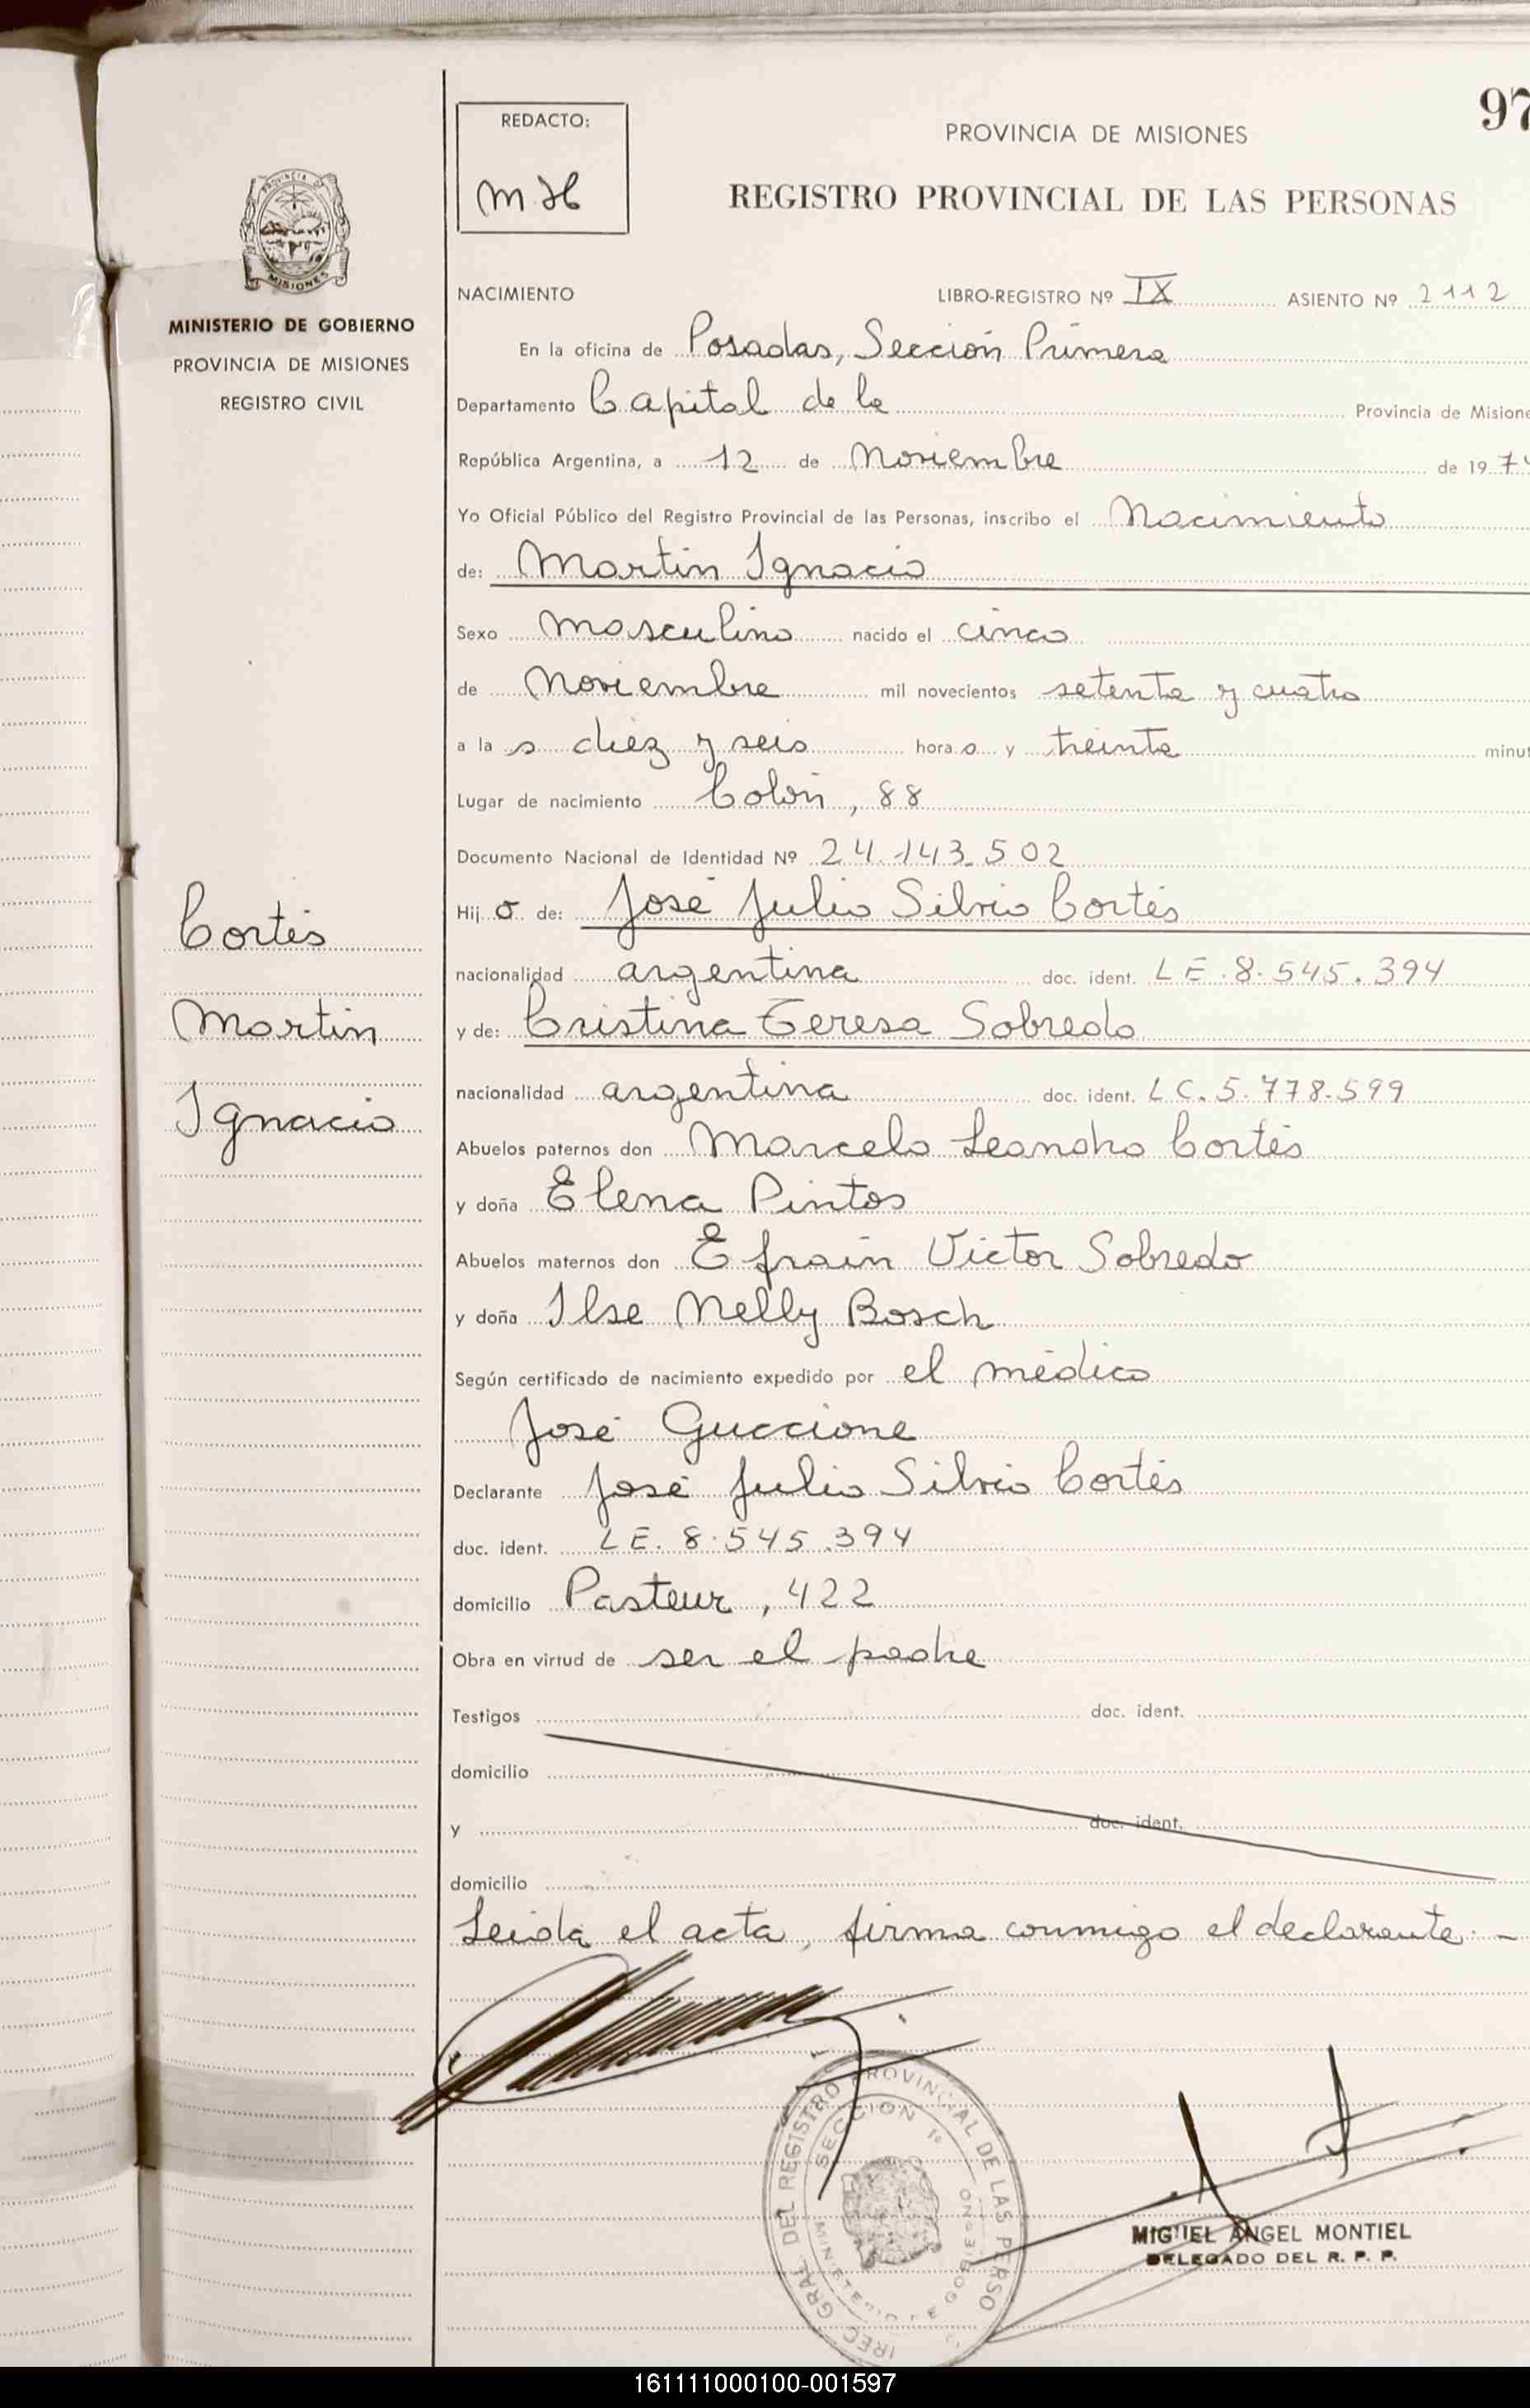 97
REDACTO:
M.H
PROVINCIA DE MISIONES
REGISTRO PROVINCIAL DE LAS PERSONAS
PROVINCIA DE
MISIONES
MINISTERIO DE GOBIERNO
PROVINCIA DE MISIONES
REGISTRO CIVIL
NACIMIENTO LIBRO-REGISTRO Nº IX ASIENTO Nº 2112
En la oficina de Posadas, Sección Primera
Departamento Capital de la Provincia de Misione
República Argentina, a 12 de Noviembre de 1974
Yo Oficial Público del Registro Provincial de las Personas, inscribo el Nacimiento
de: Martin Ignacio
Sexo masculino nacido el cinco
de Noviembre mil novecientos setenta y cuatro
a la s diez y seis hora s y treinta minut
Lugar de nacimiento Colón, 88
Documento Nacional de Identidad Nº 24.143.502
Hij o de: José Julio Silvio Cortés
nacionalidad argentina doc. ident. LE.8.545.394
y de: Cristina Teresa Sobredo
nacionalidad argentina doc. ident. LC.5.778.599
Abuelos paternos don Marcelo Leandro Cortés
y doña Elena Pintos
Abuelos maternos don Efrain Victor Sobredo
y doña Ilse Nelly Bosch
Según certificado de nacimiento expedido por el médico
José Guccione
Declarante José Julio Silvio Cortés
doc. ident. LE. 8.545.394
domicilio Pasteur, 422
Obra en virtud de ser el padre
Testigos doc. ident.
domicilio
y doc. ident.
domicilio
Leida el acta, firma conmigo el declarante.-
Cortés
Martin
Ignacio
IREC. GRAL DEL REGISTRO PROVINCIAL DE LAS PERSO
SECCION 1º
MINISTERIO DE GOBIERNO
MIGUEL ANGEL MONTIEL
DELEGADO DEL R. P. P.
161111000100-001597